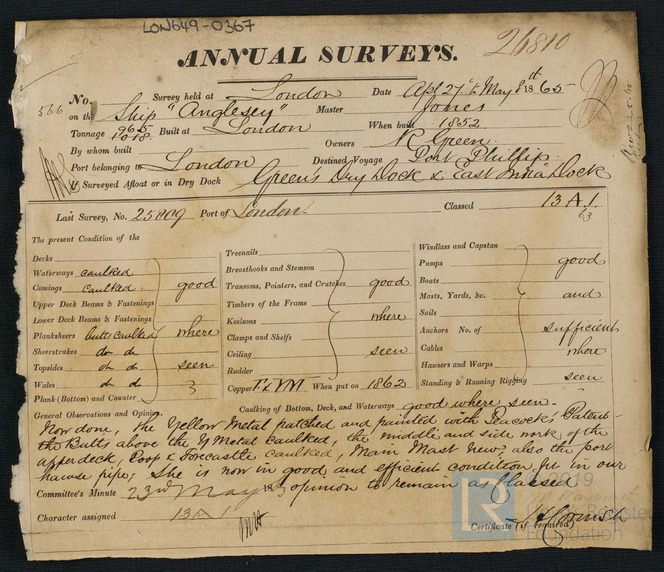 LON649-0367
26810
ANNUAL SURVEYS.
No. 566 Survey held at London Date Apl 27 to May 8th 1865
on the Ship "Anglesey" Master Jones
Tonnage 965 1018 Built at London When built 1852
By whom built Owners R Green
Port belonging to London Destined Voyage Port Phillip
If Surveyed Afloat or in Dry Dock Green's Dry Dock & East India Dock
Last Survey, No. 25809 Port of London Classed 13 A 1
63
The present Condition of the
Decks
Waterways caulked
Comings caulked good
Upper Deck Beams & Fastenings
Lower Deck Beams & Fastenings
Planksheers butts caulked where
Sheerstrakes do do
Topsides do do seen
Wales do do
Plank (Bottom) and Counter
Treenails
Breasthooks and Stemson
Transoms, Pointers, and Crutches good
Timbers of the Frame
Keelsons where
Clamps and Shelfs
Ceiling seen
Rudder
Copper F & YM When put on 1862
Windlass and Capstan
Pumps good
Boats
Masts, Yards, &c. and
Sails
Anchors No. of sufficient
Cables where
Hawsers and Warps
Standing & Running Rigging seen
Caulking of Bottom, Deck, and Waterways good where seen.
General Observations and Opinion,
Now done, the Yellow Metal patched and painted with Peacock's Patent
the Butts above the Y Metal caulked, the middle and side work of the
upperdeck, Poop & Forecastle caulked, Main Mast new, also the port
hawse pipe, She is now in good and efficient condition, fit in our
opinion to remain as classed
Committee's Minute 23rd May
Character assigned 13 A 1
Certificate (if required)
J H Cornish
2019
Lloyd's Register
Foundation